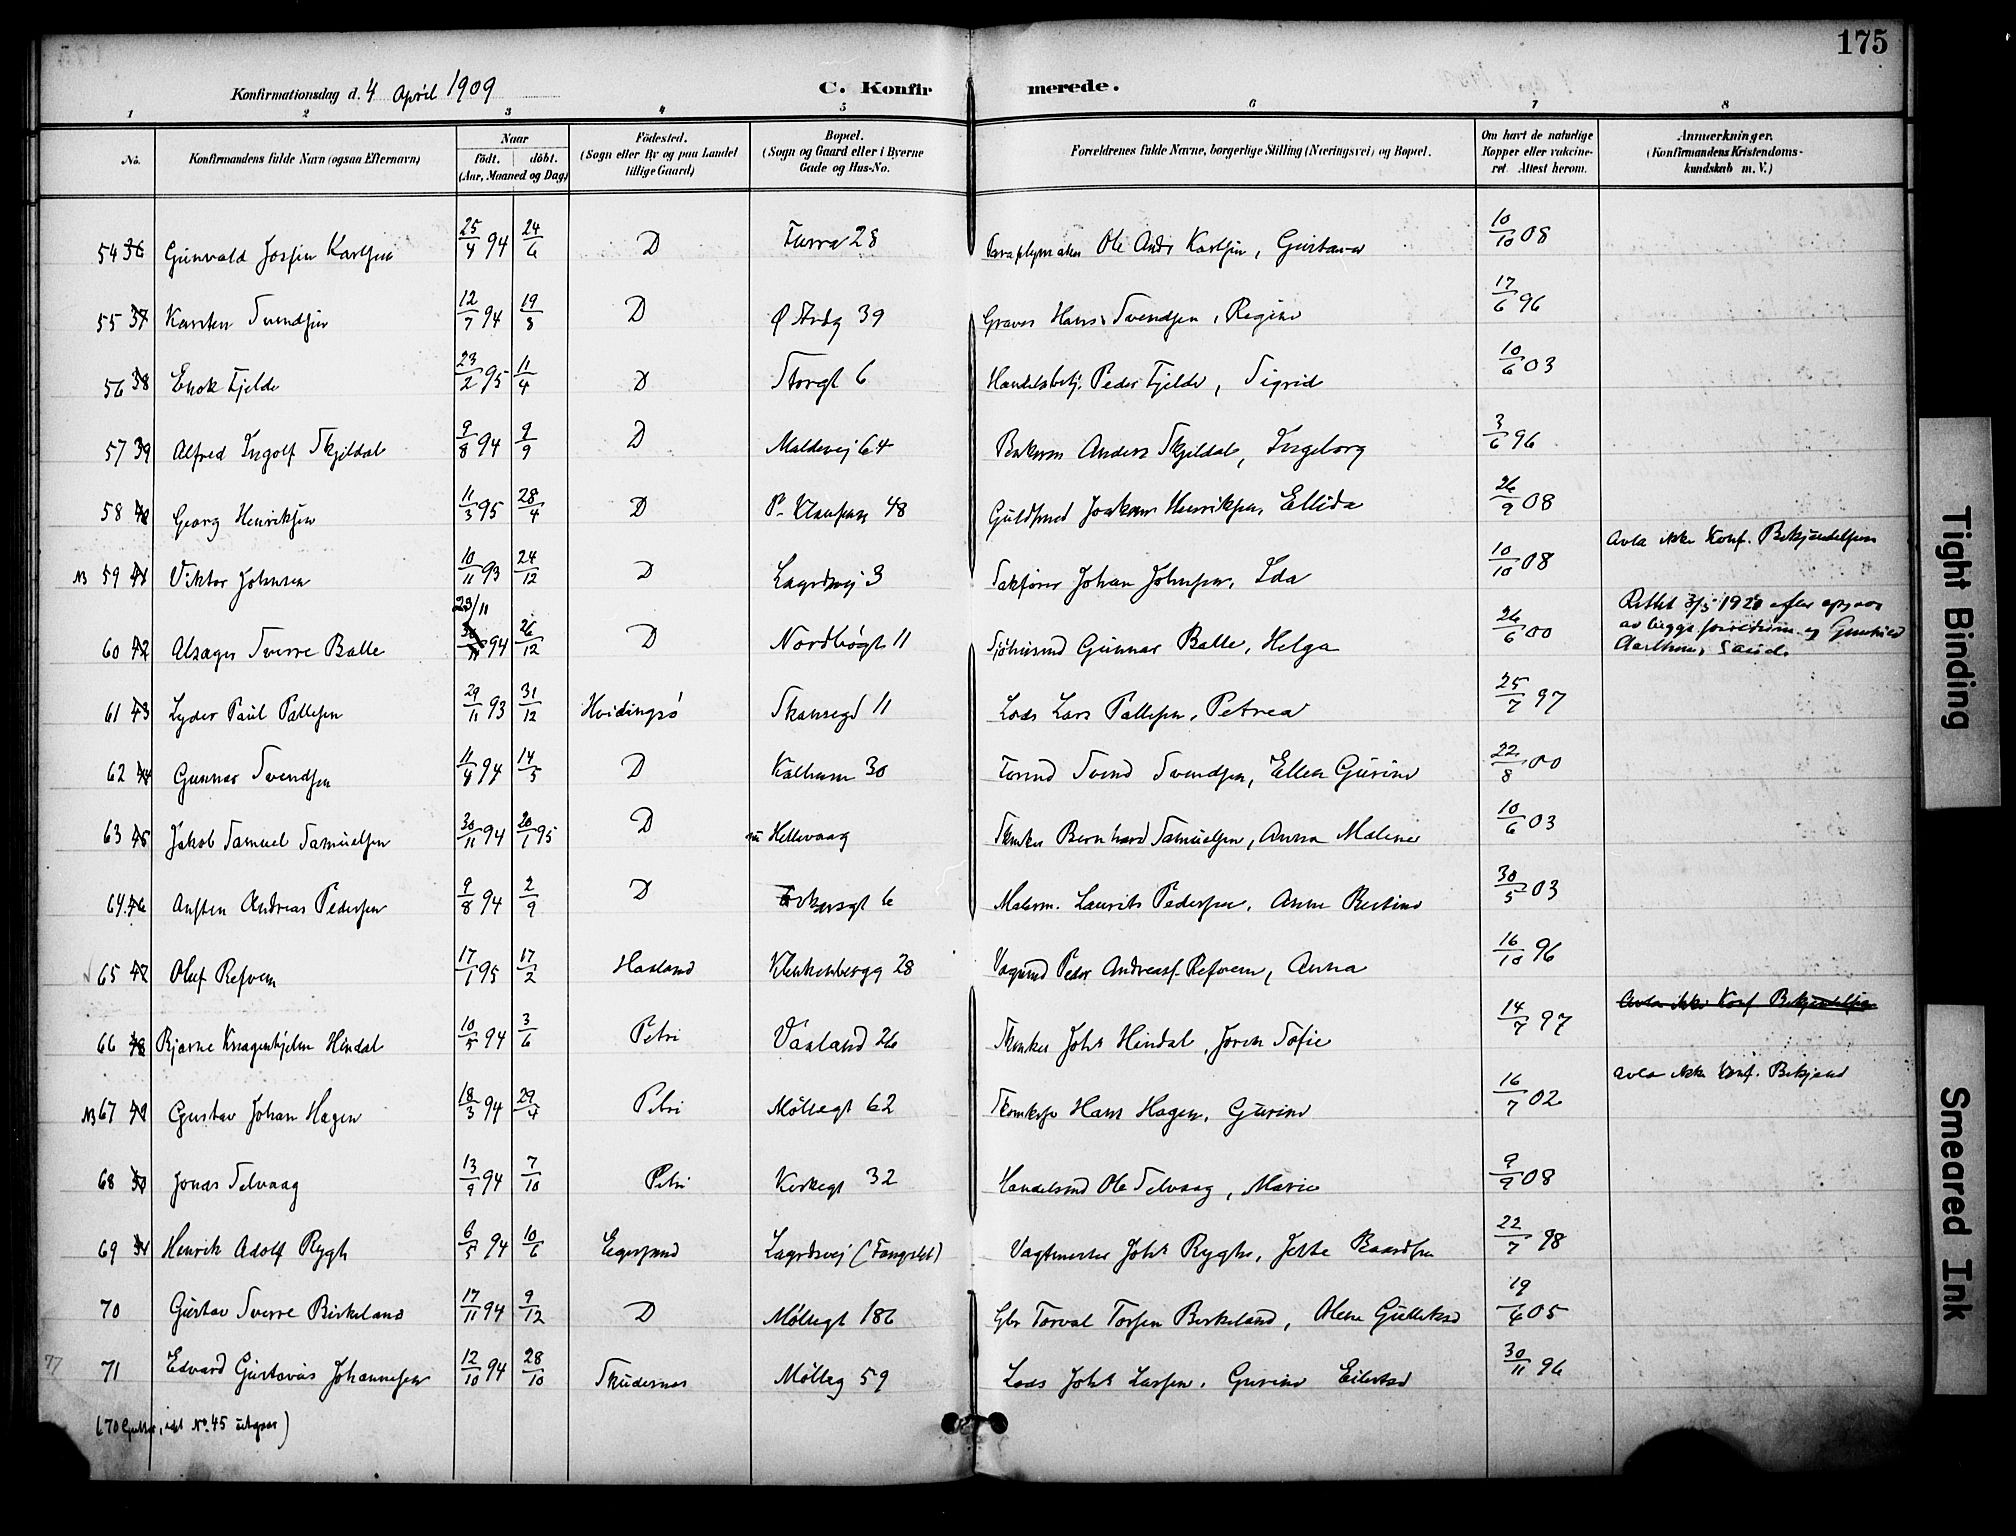 175
Konfirmationsdag d. 4 April 1909
C. Konfirmerede.
1 2 3 4 5 6 7 8
No.
Konfirmandens fulde Navn (ogsaa Efternavn)
Naar
födt. döbt.
(Aar, Maaned og Dag)
Födested.
(Sogn eller By og paa Landet
tillige Gaard)
Bopæl.
(Sogn og Gaard eller i Byerne
Gade og Hus-No.
Forældrenes fulde Navne, borgerlige Stilling (Næringsvei) og Bopæl.
Om havt de naturlige
Kopper eller vakcine-
ret. Attest herom.
Anmærkninger.
(Konfirmandens Kristendoms-
kundskab m. V.)
54 36 Gunvald Josfin Karlsen 25/4 94 24/6 D 28 Ole Andr Karlsen, Gustava 10/10 08
55 37 Karsten Svendsen 12/7 94 19/8 D Ø Strdg 39 Graver Hans Svendsen, Regine 17/6 96
56 38 Enok Fjelde 23/2 95 11/4 D Storgt 6 Handelsbetj. Peder Fjelde, Sigrid 10/6 03
57 39 Alfred Ingolf Skjildal 9/8 94 9/9 D Maldevej 64 Anders Skjeldal, Ingeborg 3/6 96
58 40 Georg Henriksen 11/3 95 28/4 D 48 Guldsmed Joakim Henriksen, Ellida 26/9 08
NB 59 41 Viktor Johnsen 10/11 93 24/12 D Lagrdsvej 3 Johan Johnsen, Ida 10/10 08 Avla ikke Konf. Bekjendelsen
60 42 Alzager Sverre Balle 23/11 94 26/12 D Nordbøgt 11 Sjømand Gunnar Balle, Helga 26/6 00 Rettet 3/5 1921 efter
av begge og
61 43 Lyder Paul Pallesen 29/11 93 31/12 Hvidingsö Skansegt 11 Lods Lars Pallesen, Petrea 25/7 97
62 44 Gunnar Svendsen 11/4 94 14/5 D Kalham 30 Svend Svendsen, Ellen Gurine 22/8 00
63 45 Jakob Samuel Samuelsen 30/11 94 20/1 95 D Hellevaag Bernhard Samuelsen, Anna Malene 10/6 03
64 46 Austen Andreas Pedersen 9/8 94 2/9 D 6 Malerm. Laurits Pedersen, Anne Bertine 30/5 03
65 47 Oluf Refvem 17/1 95 17/2 Haaland Klinkenbergg 28 Peder Andreas Refvem, Anna 16/10 96
66 48 Bjarne Knagenhjelm Hindal 10/5 94 3/6 Petri Vaaland 26 Johs Hindal, Joren Sofie 14/7 97 Avla ikke Konf Bekjendelsen
NB 67 49 Gustav Johan Hagen 18/3 94 29/4 Petri Møllegt 62 Hans Hagen, Gurine 16/7 02 Avla ikke Konf. Bekjend
68 50 Jonas Selvaag 13/9 94 7/10 Petri Kirkegt 32 Handelsmd Ole Selvaag, Marie 9/9 08
69 51 Henrik Adolf Rygh 6/5 94 10/6 Egersund Lagrdsvej (Fængslet) Vagtmester Johs Rygh, Jette 22/7 98
70 Gustav Sverre Birkeland 17/11 94 9/12 D Møllegt 186 Torval Torsen Birkeland, 19/6 05
71 Edvard Gustavus Johannesen 12/10 94 28/10 Skudenes Mølleg 59 Lods Johs Larsen, Gurine Eilertsd 30/11 96
77
(70 Gutter, idet No. 45 utgaar)
Tight Binding
Smeared Ink